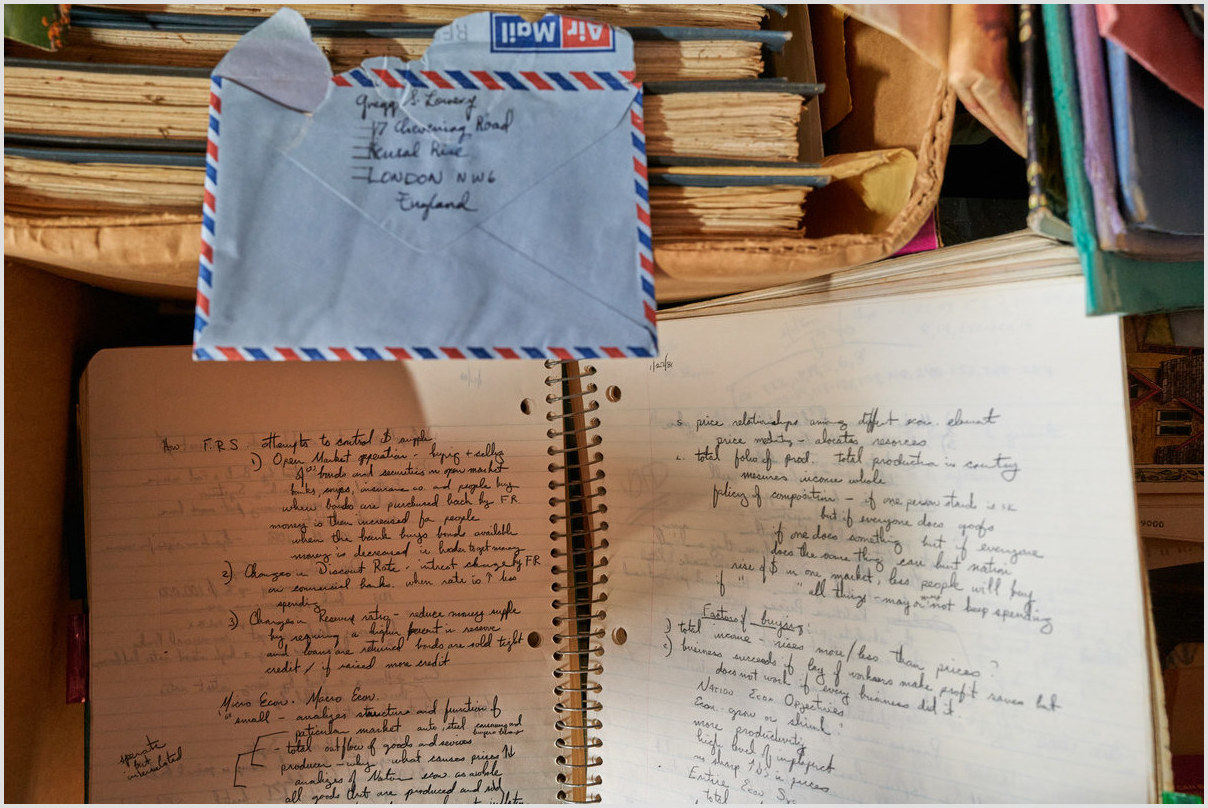 Air Mail
Gregg S. Lowery
17 Chevening Road
Kensal Rise
LONDON NW6
England
How F.R.S. attempts to control $ supply
1) Open Market operation - buying + selling
of bonds and securities in open market
banks, corps, insurance co. and people buy
when bonds are purchased back by F.R.
money is then increased for people
when the bank buys bonds available
money is decreased ie harder to get money
2) Changes in Discount Rate - intrest change by FR
on comercial banks. when rate is ↑ less
spending
3) Changes in Reserve ratio - reduce money supply
by requiring a higher percent in reserve
and loans are returned bonds are sold tight
credit / if raised more credit
Micro Econ. Macro Econ.
"small - analizes structure and function of
peticular market auto, steel consumers and
buying
- total outflow of goods and services
producer - why, what causes prices ↑↓
analizes of Nation econ as whole
all goods that are produced and sold
seperate
but
interrelated
price relationships among diffent econ elements
price meditly - alocates resorces
total folio of prod. total production in country
mesures income whole
folicy of composition - if one person stands is ok
but if everyone does goofs
if one does something but if everyone
does the same thing can hurt nation
rise of $ in one market, less people will buy
if " " all things - may or not keep spending
Factors of buying:
1) total income - rises more/less than prices?
2) business succeeds if lay of workers make profit raises but
does not work if every business did it.
Nation Econ Opjectives:
Econ. grow or shrink?
more productivity
high level of
no sharp ↑↓ in prices
Entire Econ
total
9000